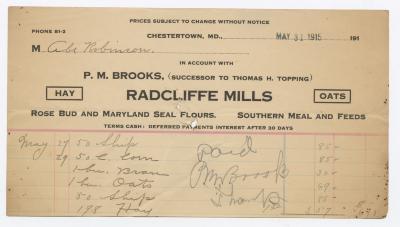 PRICES SUBJECT TO CHANGE WITHOUT NOTICE
PHONE 81-2
CHESTERTOWN, MD., MAY 31 1915 191
M Abe Robinson.
IN ACCOUNT WITH
P. M. BROOKS, (SUCCESSOR TO THOMAS H. TOPPING)
HAY RADCLIFFE MILLS OATS
ROSE BUD AND MARYLAND SEAL FLOURS. SOUTHERN MEAL AND FEEDS
TERMS CASH: DEFERRED PAYMENTS INTEREST AFTER 30 DAYS
May 27 50 Ship 85
29 50 C. Corn 85
1 bu. Bran
1 bu. Oats 69
50 Ship 85
198 Hay
Paid
PM Brook